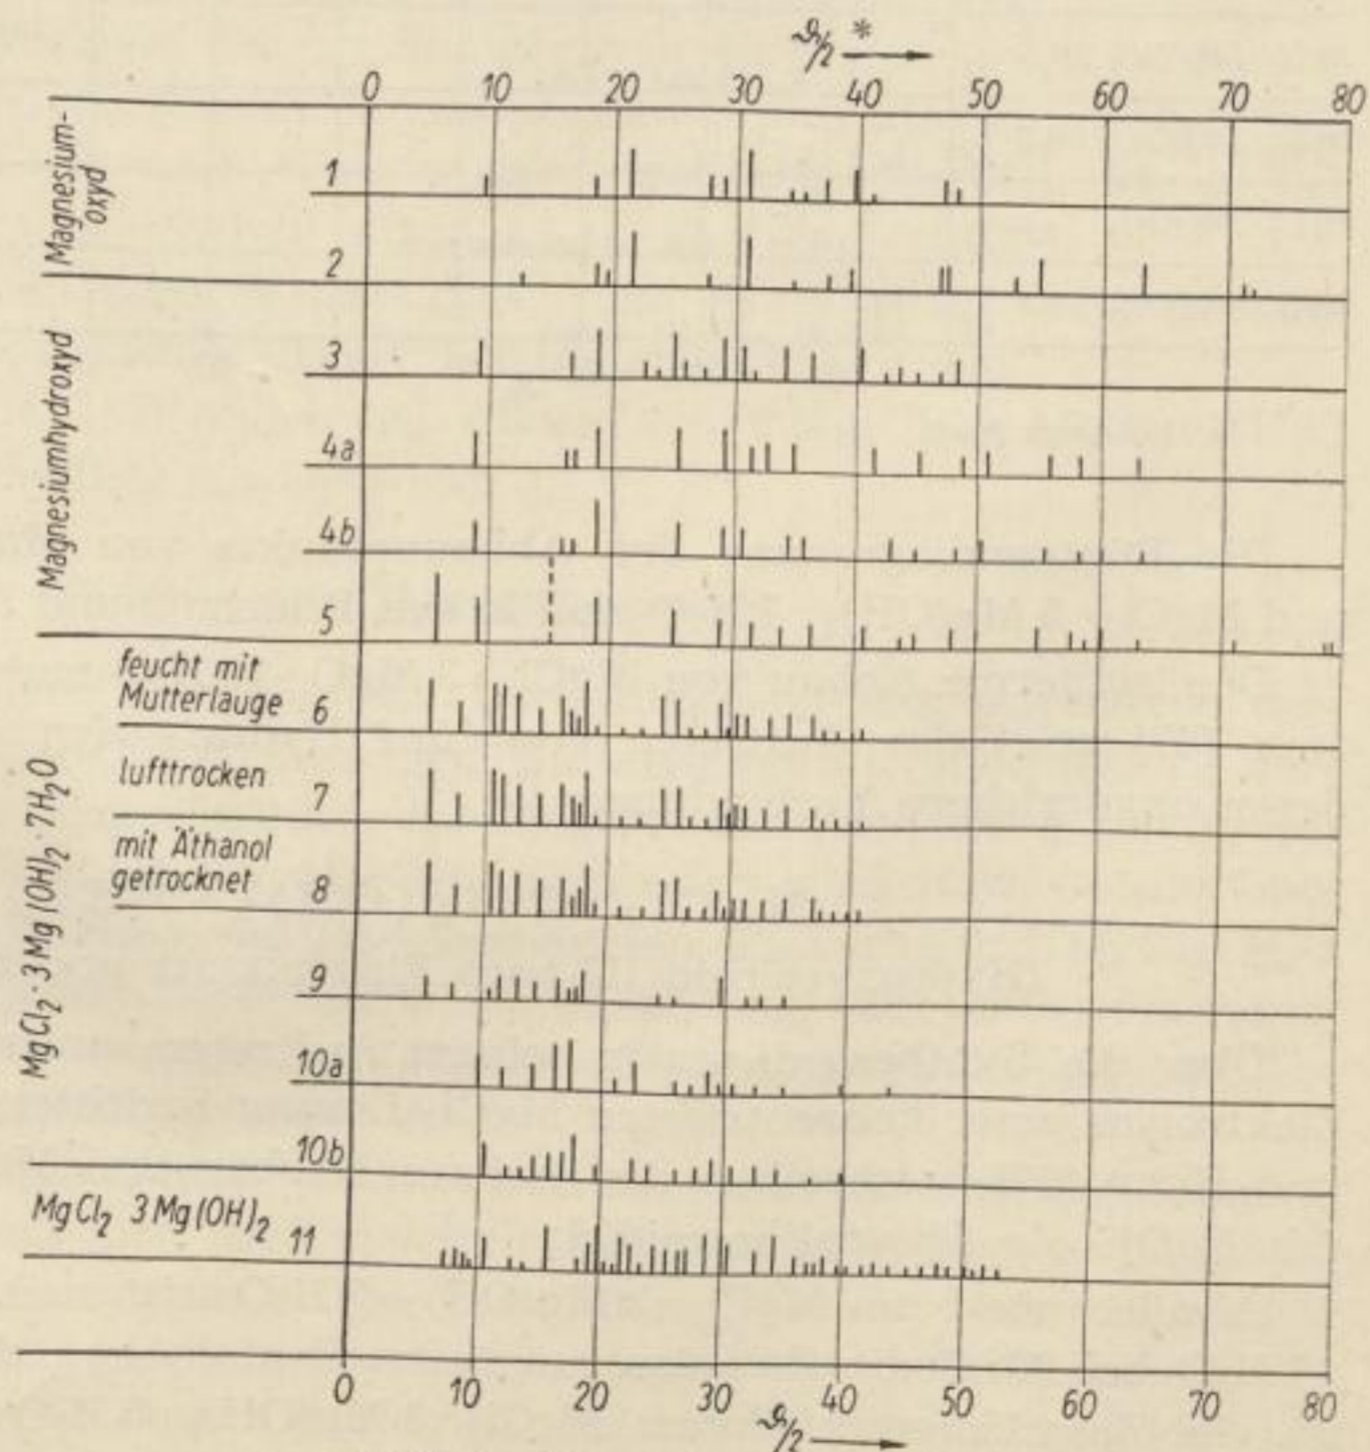 ϑ/2 *
0 10 20 30 40 50 60 70 80
Magnesium-
oxyd
1
2
Magnesiumhydroxyd
3
4a
4b
5
MgCl₂·3Mg(OH)₂·7H₂O
feucht mit
Mutterlauge 6
lufttrocken 7
mit Äthanol
getrocknet 8
9
10a
10b
MgCl₂ 3Mg(OH)₂ 11
0 10 20 30 40 50 60 70 80
ϑ/2